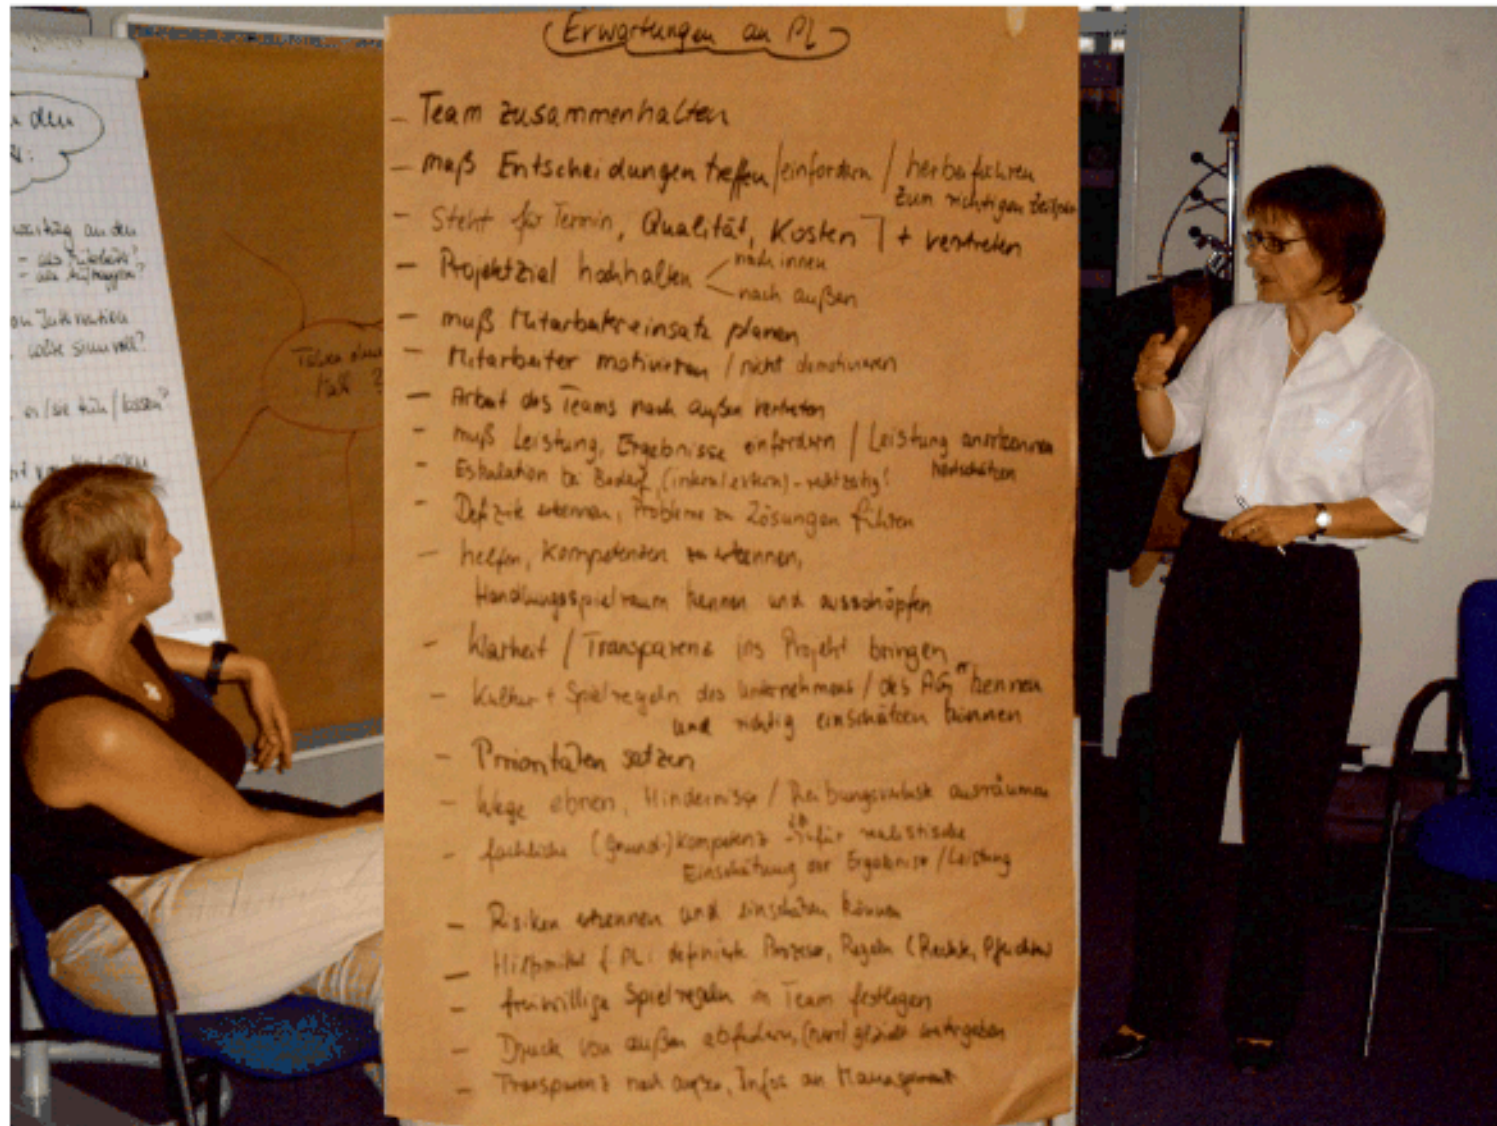 Erwartungen an PL
- Team zusammenhalten
- muß Entscheidungen treffen / einfordern / herbeiführen
zum richtigen Zeitpunkt
- Steht für Termin, Qualität, Kosten ] + vertreten
- Projektziel hochhalten < nach innen
nach außen
- muß Mitarbeitereinsatz planen
- Mitarbeiter motivieren / nicht demotivieren
- Arbeit des Teams nach außen vertreten
- muß Leistung, Ergebnisse einfordern / Leistung anerkennen
- Eskalation bei Bedarf, (intern/extern) - rechtzeitig! wertschätzen
- Defizite erkennen, Probleme zu Lösungen führen
- helfen, Kompetenzen zu erkennen,
Handlungsspielraum kennen und ausschöpfen
- Klarheit / Transparenz ins Projekt bringen
- Kultur + Spielregeln des Unternehmens / des AG" kennen
und richtig einschätzen können
- Prioritäten setzen
- Wege ebnen, Hindernisse / Reibungsverluste ausräumen
- fachliche (Grund-) Kompetenz z.B. für realistische
Einschätzung der Ergebnisse / Leistung
- Risiken erkennen und einschätzen können
- Hilfsmittel f. PL: definierte Prozesse, Regeln (Rechte, Pflichten)
- freiwillige Spielregeln im Team festlegen
- Druck von außen abfedern, (nur) gezielt weitergeben
- Transparenz nach außen, Infos an Management
den
an den
- als
- als
sinnvoll?
er/sie tun / lassen?